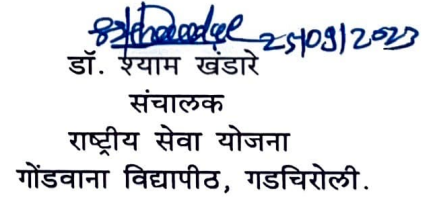 25/09/2023
डॉ. श्याम खंडारे
संचालक
राष्ट्रीय सेवा योजना
गोंडवाना विद्यापीठ, गडचिरोली.